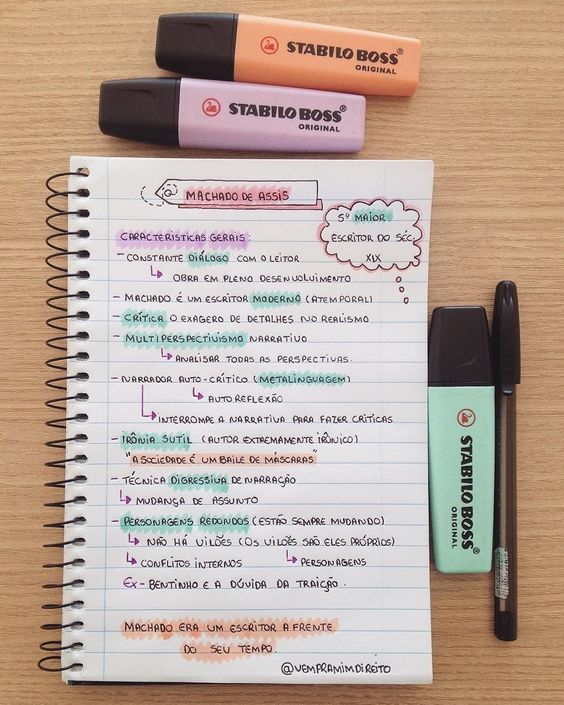 STABILO BOSS®
ORIGINAL
STABILO BOSS®
ORIGINAL
MACHADO DE ASSIS
5º MAIOR
ESCRITOR DO SÉC.
XIX
CARACTERÍSTICAS GERAIS:
- CONSTANTE DIÁLOGO COM O LEITOR
↳ OBRA EM PLENO DESENVOLVIMENTO
- MACHADO É UM ESCRITOR MODERNO (ATEMPORAL)
- CRÍTICA O EXAGERO DE DETALHES NO REALISMO
- MULTIPERSPECTIVISMO NARRATIVO
↳ ANALISAR TODAS AS PERSPECTIVAS.
- NARRADOR AUTO-CRÍTICO (METALINGUAGEM)
↳ AUTO REFLEXÃO
↳ INTERROMPE A NARRATIVA PARA FAZER CRÍTICAS
- IRÔNIA SUTIL (AUTOR EXTREMAMENTE IRÔNICO)
"A SOCIEDADE É UM BAILE DE MÁSCARAS"
- TÉCNICA DIGRESSIVA DE NARRAÇÃO
↳ MUDANÇA DE ASSUNTO
- PERSONAGENS REDONDOS (ESTÃO SEMPRE MUDANDO)
↳ NÃO HÁ VILÕES (OS VILÕES SÃO ELES PRÓPRIOS)
↳ CONFLITOS INTERNOS ↳ PERSONAGENS
EX - BENTINHO E A DÚVIDA DA TRAIÇÃO.
MACHADO ERA UM ESCRITOR A FRENTE
DO SEU TEMPO.
@VEMPRAMIMDIREITO
STABILO BOSS®
ORIGINAL